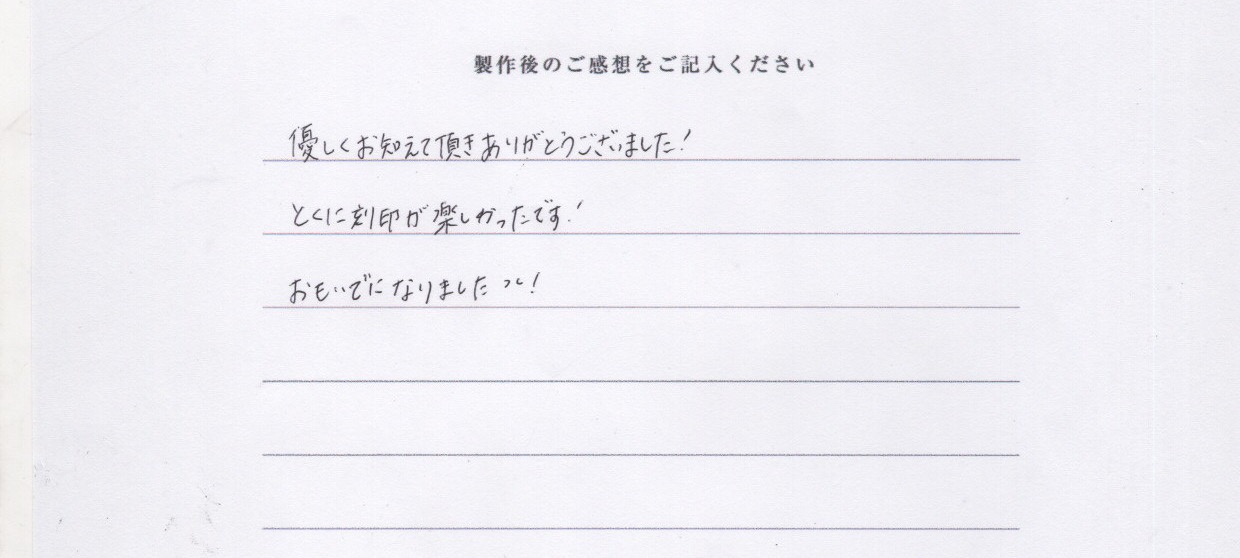 製作後のご感想をご記入ください
優しくお知えて頂きありがとうございました!
とくに刻印が楽しかったです!
おもいでになりました !